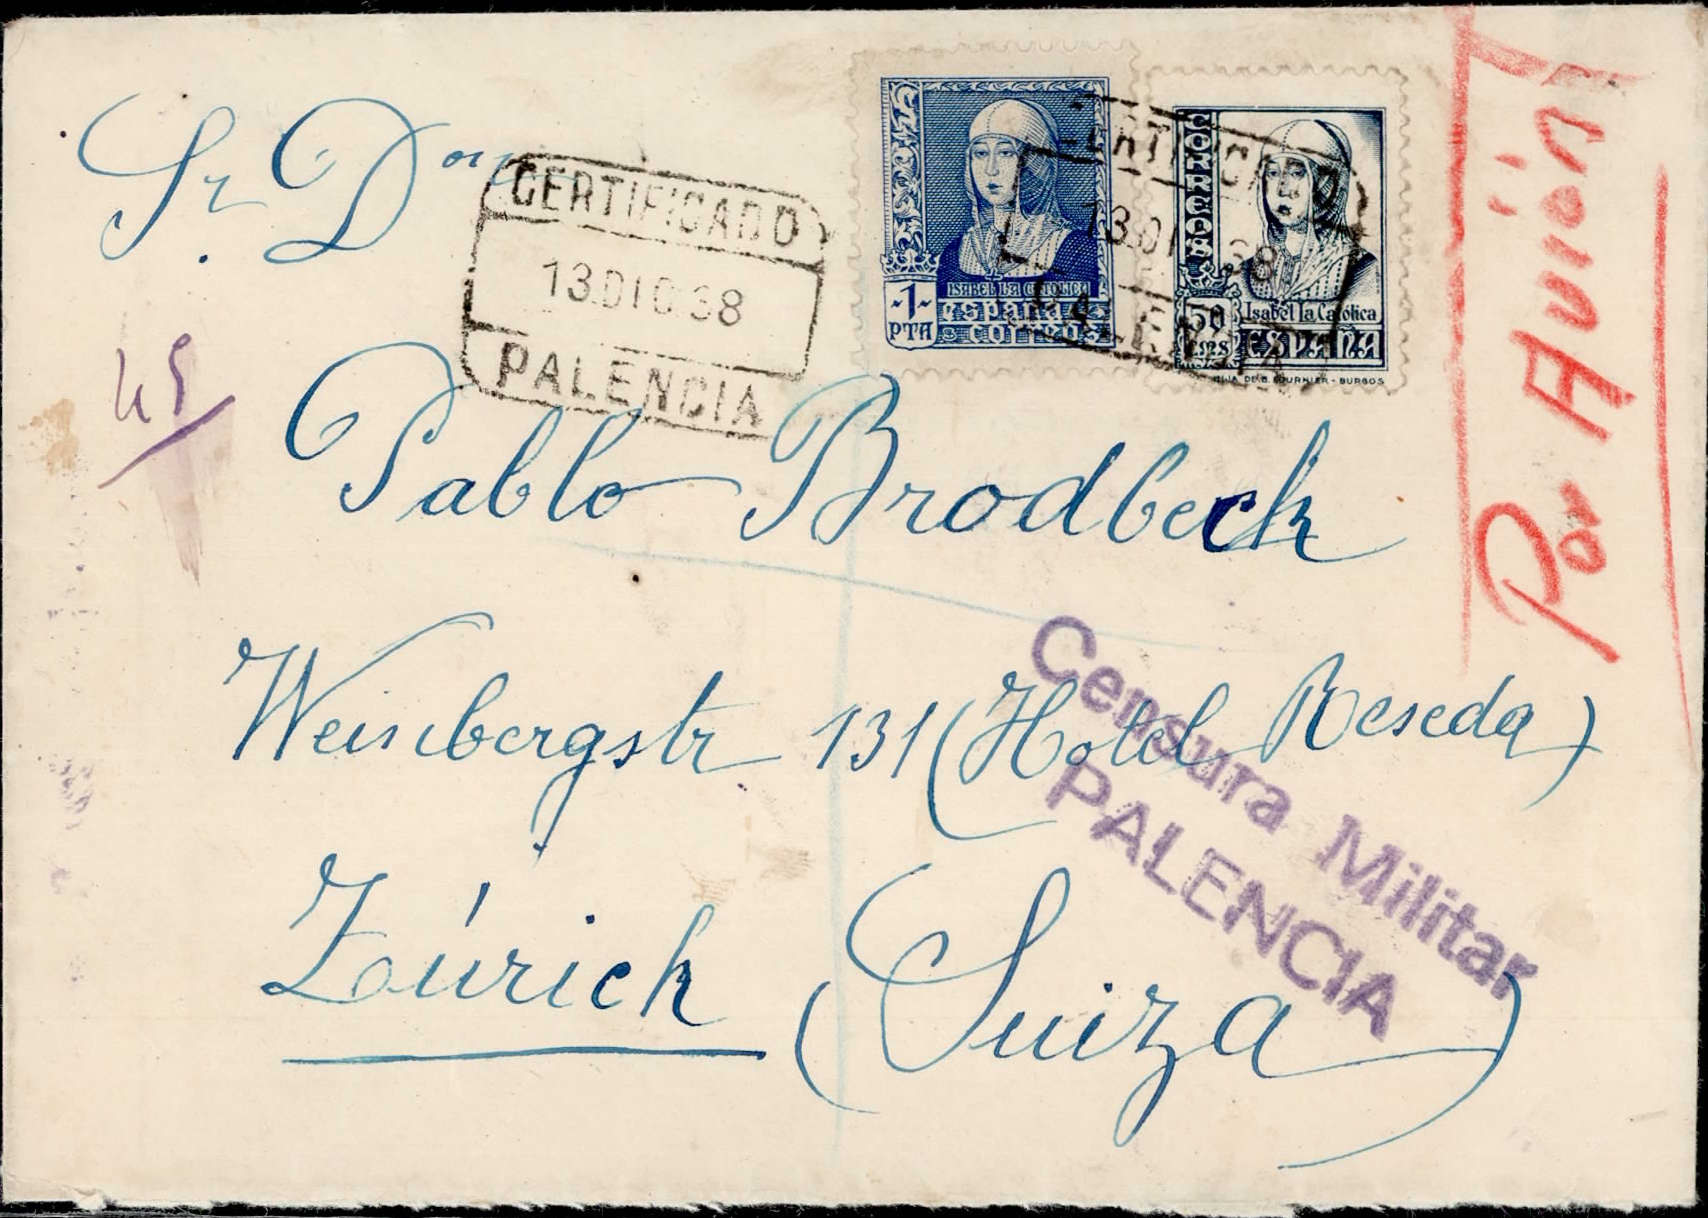 Sr. Don
CERTIFICADO
13.DIC.38
PALENCIA
ISABEL LA CATOLICA
-1-
PTA
españa
correos
CERTIFICADO
13.DIC.38
PALENCIA
CORREOS
50
CTMS
Isabel la Catolica
ESPAÑA
HIJA DE B. FOURNIER - BURGOS
Por Avión
45
Pablo Brodbeck
Weinbergstr 131 (Hotel Reseda)
Censura Militar
PALENCIA
Zúrich (Suiza)